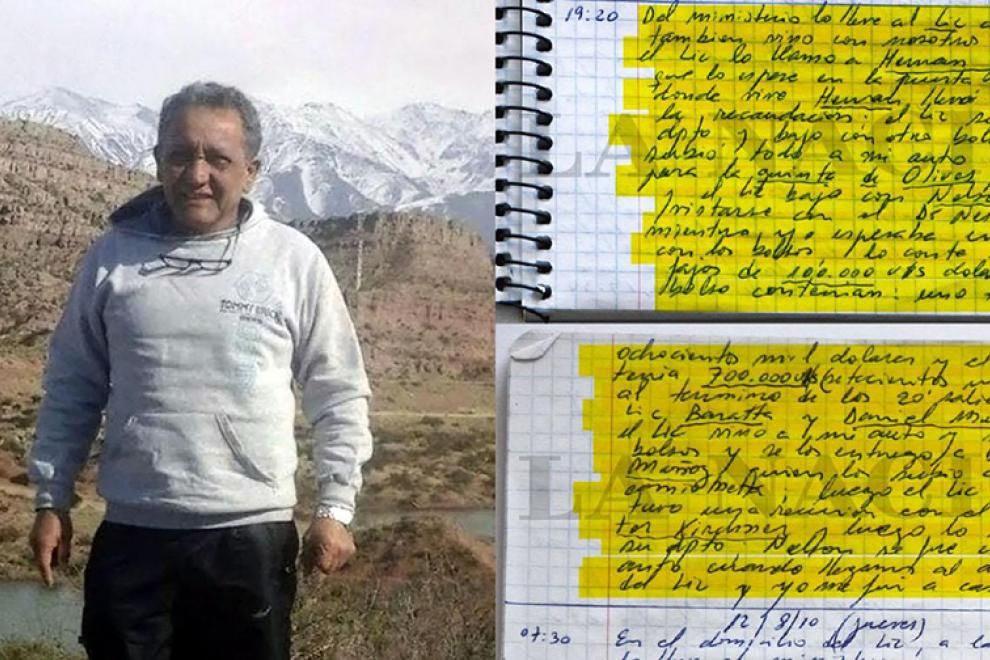 TOMMY
19:20 Del ministerio lo lleve al Lic
tambien vino con nosotros
el Lic lo llamo a Hernan
que lo espere en la puerta
donde vive Hernan llevá
la recaudación: el Lic
dpto y bajo con otro
subio todo a mi auto
para la quinta de Olivos
y el Lic bajo con Nelson
con el Dr Nes
mientras yo esperaba en
con los bolsos, lo conte
fajos de 100.000 u$s dola
bolso contenian: uno
ochocientos mil dolares y el
tenia 700.000 u$s (setecientos
al termino de los 20
Lic Baratta y Daniel Mu
el Lic vino a mi auto y
bolsos y se los entrego a
Muñoz, quien los subio a
camioneta, luego el Lic
tuvo una reunion con el
tor Kirchner, luego lo
su dpto, Nelson se fue
auto cuando llegamos al
del Lic y yo me fui a cas
12/8/10 (jueves)
07:30 En el domicilio del Lic, a la
LA NACI
LA NAC